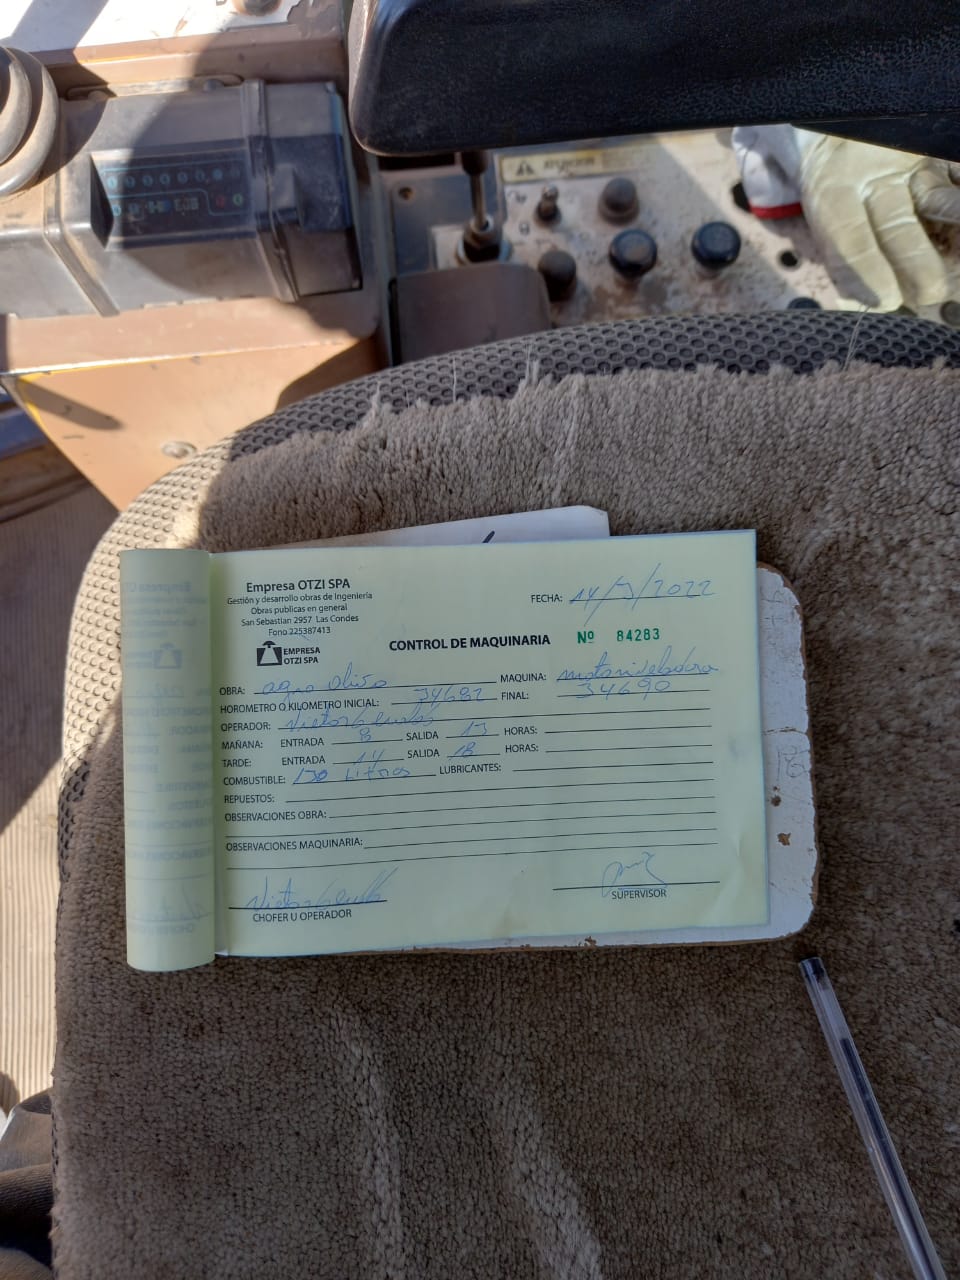 Empresa OTZI SPA
Gestión y desarrollo obras de Ingeniería
Obras publicas en general
San Sebastian 2957 Las Condes
Fono 225387413
EMPRESA
OTZI SPA
FECHA: 14/ /2022
CONTROL DE MAQUINARIA Nº 84283
OBRA: agro Olivo MAQUINA: motoniveladora
HOROMETRO O KILOMETRO INICIAL: 34682 FINAL: 34690
OPERADOR: Victor
MAÑANA: ENTRADA 8 SALIDA 13 HORAS:
TARDE: ENTRADA 14 SALIDA 18 HORAS:
COMBUSTIBLE: 130 Litros LUBRICANTES:
REPUESTOS:
OBSERVACIONES OBRA:
OBSERVACIONES MAQUINARIA:
Victor
CHOFER U OPERADOR
SUPERVISOR